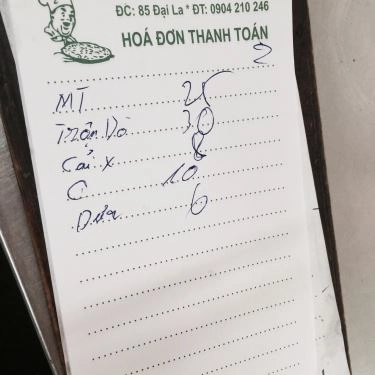 ĐC: 85 Đại La * ĐT: 0904 210 246
HOÁ ĐƠN THANH TOÁN
2
MT 25
Trần Vỏ 30
Cải X 8
C 10
Dưa 6